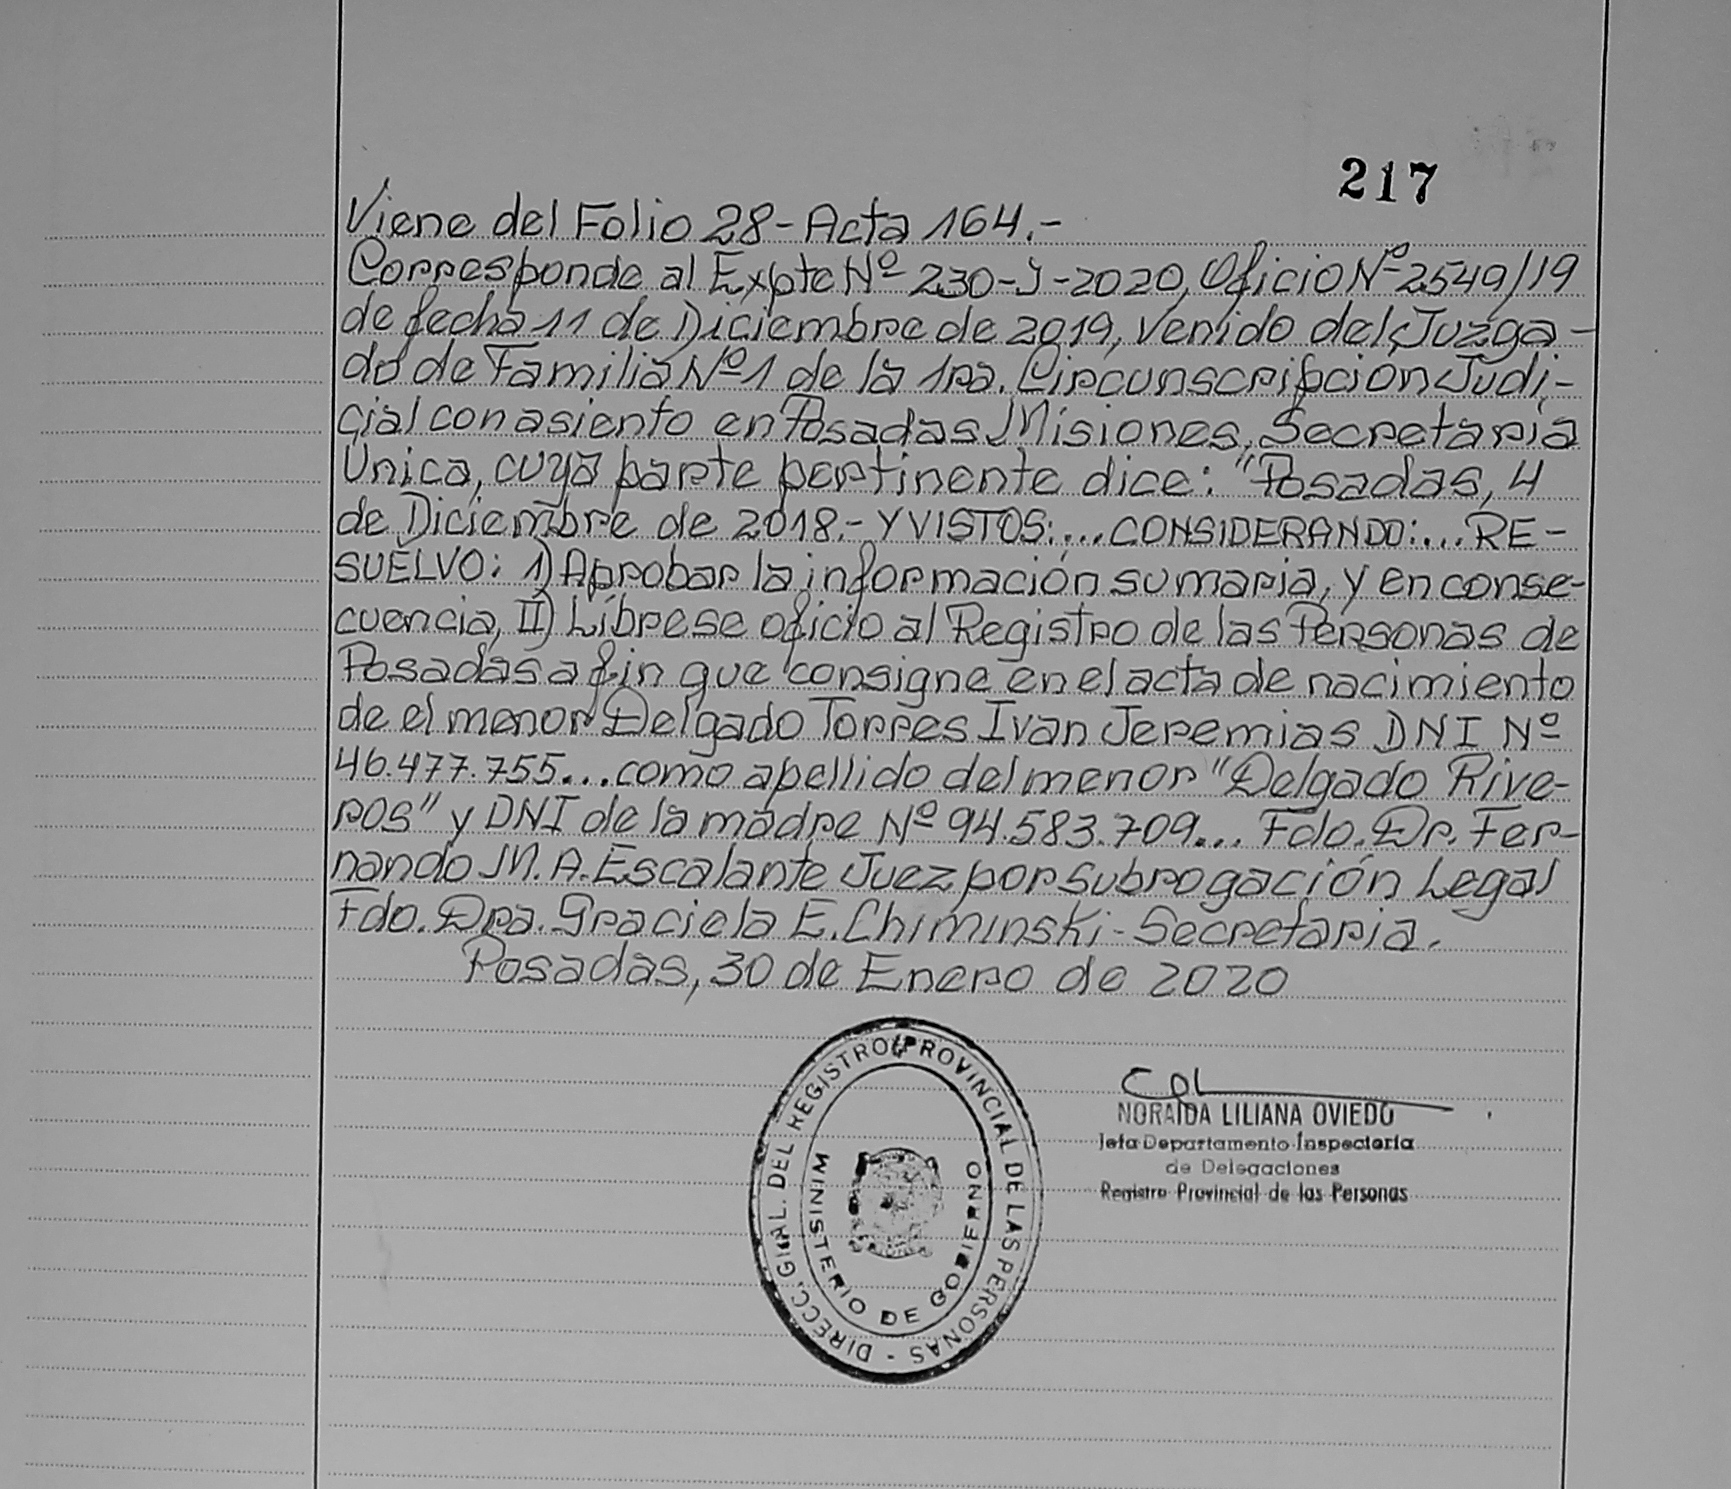 217
Viene del Folio 28-Acta 164.-
Corresponde al Expte Nº 230-J-2020, Oficio Nº 2549/19
de fecha 11 de Diciembre de 2019, Venido del Juzga-
do de Familia Nº 1 de la 1ra. Circunscripción Judi-
cial con asiento en Posadas Misiones, Secretaría
Única, cuya parte pertinente dice: "Posadas, 4
de Diciembre de 2018.- Y VISTOS:...CONSIDERANDO:...RE-
SUELVO: 1) Aprobar la información sumaria, y en conse-
cuencia, II) Líbrese oficio al Registro de las Personas de
Posadas a fin que consigne en el acta de nacimiento
de el menor Delgado Torres Ivan Jeremias DNI Nº
46.477.755...como apellido del menor "Delgado Rive-
ros" y DNI de la madre Nº 94.583.709... Fdo. Dr. Fer-
nando M. A. Escalante Juez por subrogación Legal
Fdo. Dra. Graciela E. Chiminski - Secretaria.
Posadas, 30 de Enero de 2020
DIRECC. GRAL. DEL REGISTRO PROVINCIAL DE LAS PERSONAS -
MINISTERIO DE GOBIERNO
NORAIDA LILIANA OVIEDO
Jefa Departamento Inspectoría
de Delegaciones
Registro Provincial de las Personas